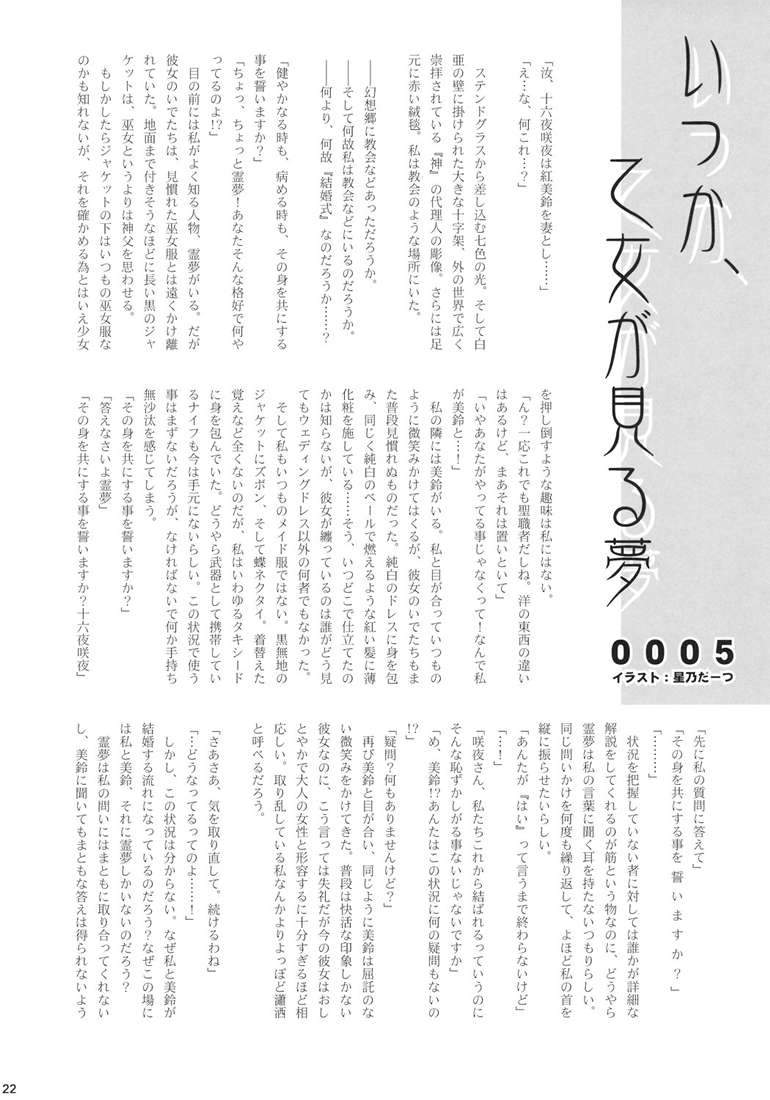 いつか、
乙女が見る夢
0005
イラスト：星乃だーつ
「汝、十六夜咲夜は紅美鈴を妻とし……」
「え…な、何これ…？」
ステンドグラスから差し込む七色の光。そして白
亜の壁に掛けられた大きな十字架、外の世界で広く
崇拝されている『神』の代理人の彫像。さらには足
元に赤い絨毯。私は教会のような場所にいた。
――幻想郷に教会などあっただろうか。
――そして何故私は教会などにいるのだろうか。
――何より、何故『結婚式』なのだろうか……？
「健やかなる時も、病める時も、その身を共にする
事を誓いますか？」
「ちょっ、ちょっと霊夢！あなたそんな格好で何や
ってるのよ!?」
目の前には私がよく知る人物、霊夢がいる。だが
彼女のいでたちは、見慣れた巫女服とは遠くかけ離
れていた。地面まで付きそうなほどに長い黒のジャ
ケットは、巫女というよりは神父を思わせる。
もしかしたらジャケットの下はいつもの巫女服な
のかも知れないが、それを確かめる為とはいえ少女
を押し倒すような趣味は私にはない。
「ん？一応これでも聖職者だしね。洋の東西の違い
はあるけど、まあそれは置いといて」
「いやあなたがやってる事じゃなくって！なんで私
が美鈴と…！」
私の隣には美鈴がいる。私と目が合っていつもの
ように微笑みかけてはくるが、彼女のいでたちもま
た普段見慣れぬものだった。純白のドレスに身を包
み、同じく純白のベールで燃えるような紅い髪に薄
化粧を施している……そう、いつどこで仕立てたの
かは知らないが、彼女が纏っているのは誰がどう見
てもウェディングドレス以外の何者でもなかった。
そして私もいつものメイド服ではない。黒無地の
ジャケットにズボン、そして蝶ネクタイ。着替えた
覚えなど全くないのだが、私はいわゆるタキシード
に身を包んでいた。どうやら武器として携帯してい
るナイフも今は手元にないらしい。この状況で使う
事はまずないだろうが、なければないで何か手持ち
無沙汰を感じてしまう。
「その身を共にする事を誓いますか？」
「答えなさいよ霊夢」
「その身を共にする事を誓いますか？十六夜咲夜」
「先に私の質問に答えて」
「その身を共にする事を 誓 い ま す か ？」
「………」
状況を把握していない者に対しては誰かが詳細な
解説をしてくれるのが筋という物なのに、どうやら
霊夢は私の言葉に聞く耳を持たないつもりらしい。
同じ問いかけを何度も繰り返して、よほど私の首を
縦に振らせたいらしい。
「あんたが『はい』って言うまで終わらないけど」
「…！」
「咲夜さん、私たちこれから結ばれるっていうのに
そんな恥ずかしがる事ないじゃないですか」
「め、美鈴!?あんたはこの状況に何の疑問もないの
!?
「疑問？何もありませんけど？」
再び美鈴と目が合い、同じように美鈴は屈託のな
い微笑みをかけてきた。普段は快活な印象しかない
彼女なのに、こう言っては失礼だが今の彼女はおし
とやかで大人の女性と形容するに十分すぎるほど相
応しい。取り乱している私なんかよりよっぽど瀟洒
と呼べるだろう。
「さあさあ、気を取り直して。続けるわね」
「…どうなってるってのよ……！」
しかし、この状況は分からない。なぜ私と美鈴が
結婚する流れになっているのだろう？なぜこの場に
は私と美鈴、それに霊夢しかいないのだろう？
霊夢は私の問いにはまともに取り合ってくれない
し、美鈴に聞いてもまともな答えは得られないよう
22